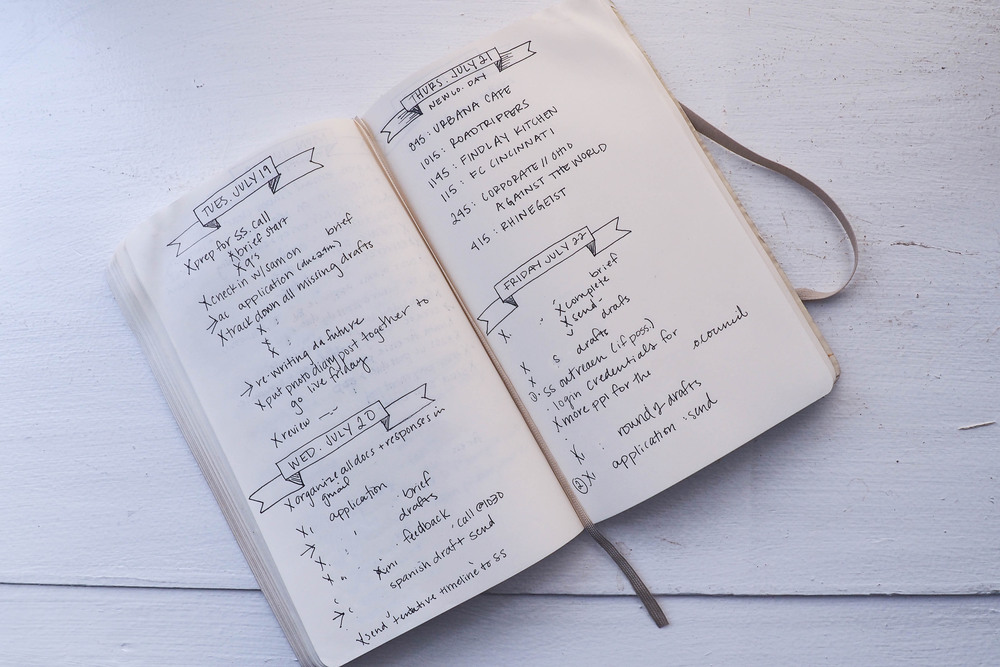 TUES. JULY 19
X prep for SS. call
X brief start
X q's
X check in w/sam on brief
> ac application (due 27th)
X track down all missing drafts
X
X
> re-writing da future
X put photo diary post together to
go live friday
X review
WED. JULY 20
X organize all docs + responses in
gmail
X application brief
> drafts
X feedback
X call @ 1030
> spanish draft send
X send tentative timeline to SS
THURS. JULY 21
NEWCO. DAY
845: URBANA CAFE
1015: ROADTRIPPERS
1145: FINDLAY KITCHEN
115: FC CINCINNATI
245: CORPORATE // OHIO
AGAINST THE WORLD
415: RHINEGEIST
FRIDAY JULY 22
X brief
X complete
X send
drafs
X s drafts
X
SS outreach (if poss)
login credentials for council
X more ppl for the
X round 2 drafts
X application send